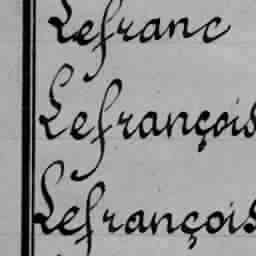 Lefranc
Lefrançois
Lefrançois